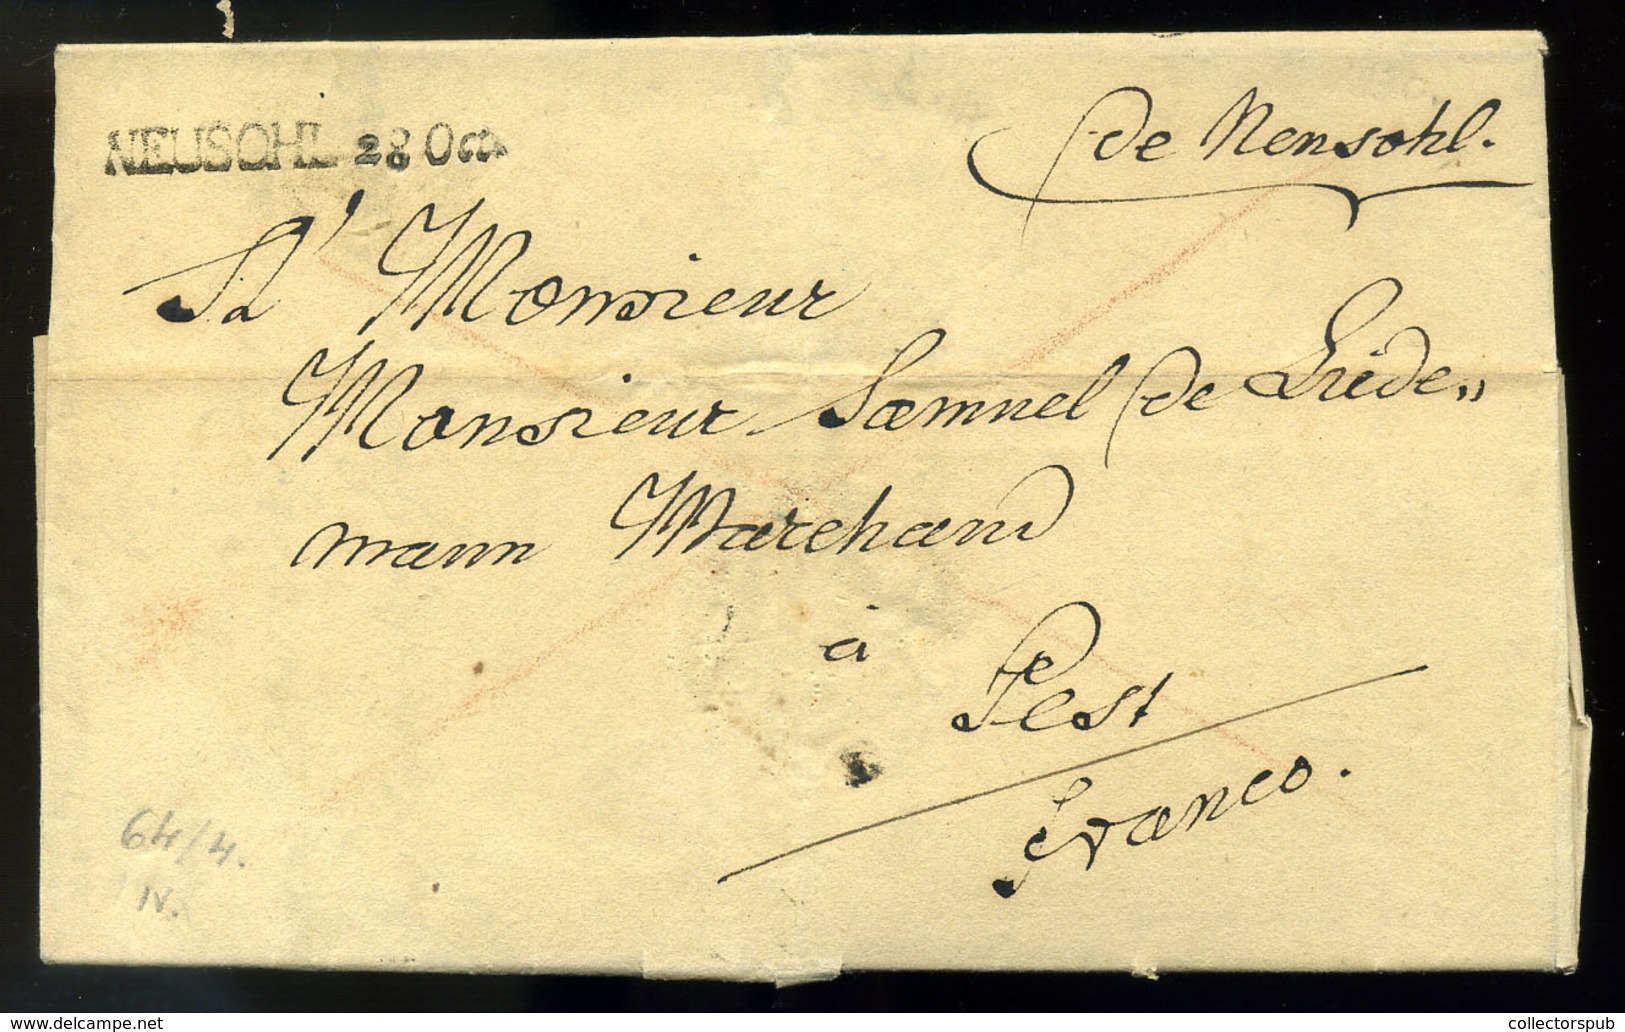 NEUSOHL 28 Oct
de Neusohl.
A' Monsieur
Monsieur Samuel de Liede„
mann Marchand
à
Pest
franco.
64/4.
IV.
collectorspub